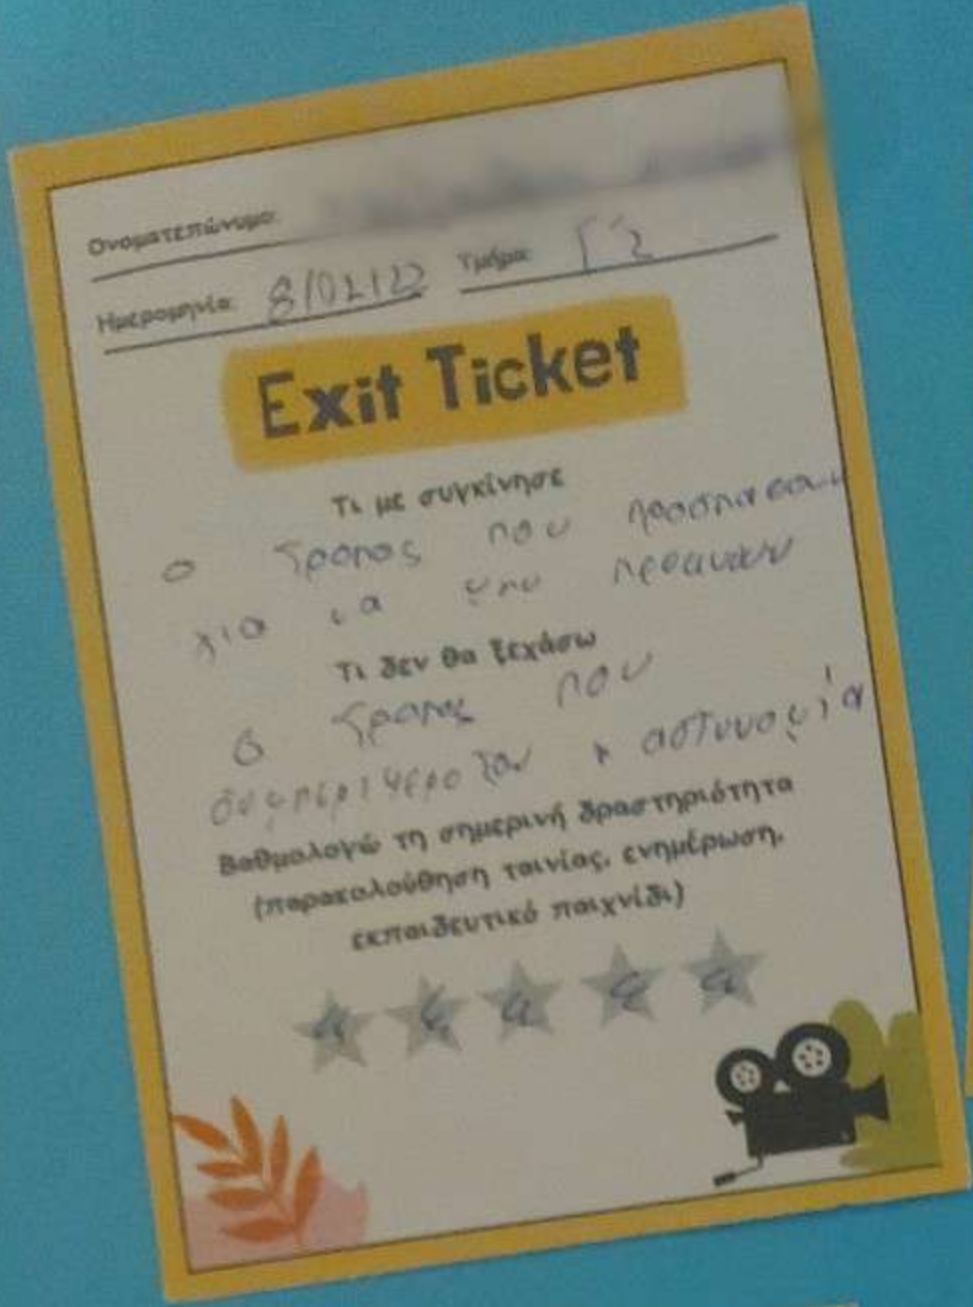 Ονοματεπώνυμο:
Ημερομηνία: 8/02/22 Τμήμα: Γ2
Exit Ticket
Τι με συγκίνησε
ο τροπος που
για να
Τι δεν θα ξεχάσω
ο τροπος που
συμπεριφεροταν η αστυνομία
Βαθμολογώ τη σημερινή δραστηριότητα
(παρακολούθηση ταινίας, ενημέρωση,
εκπαιδευτικό παιχνίδι)